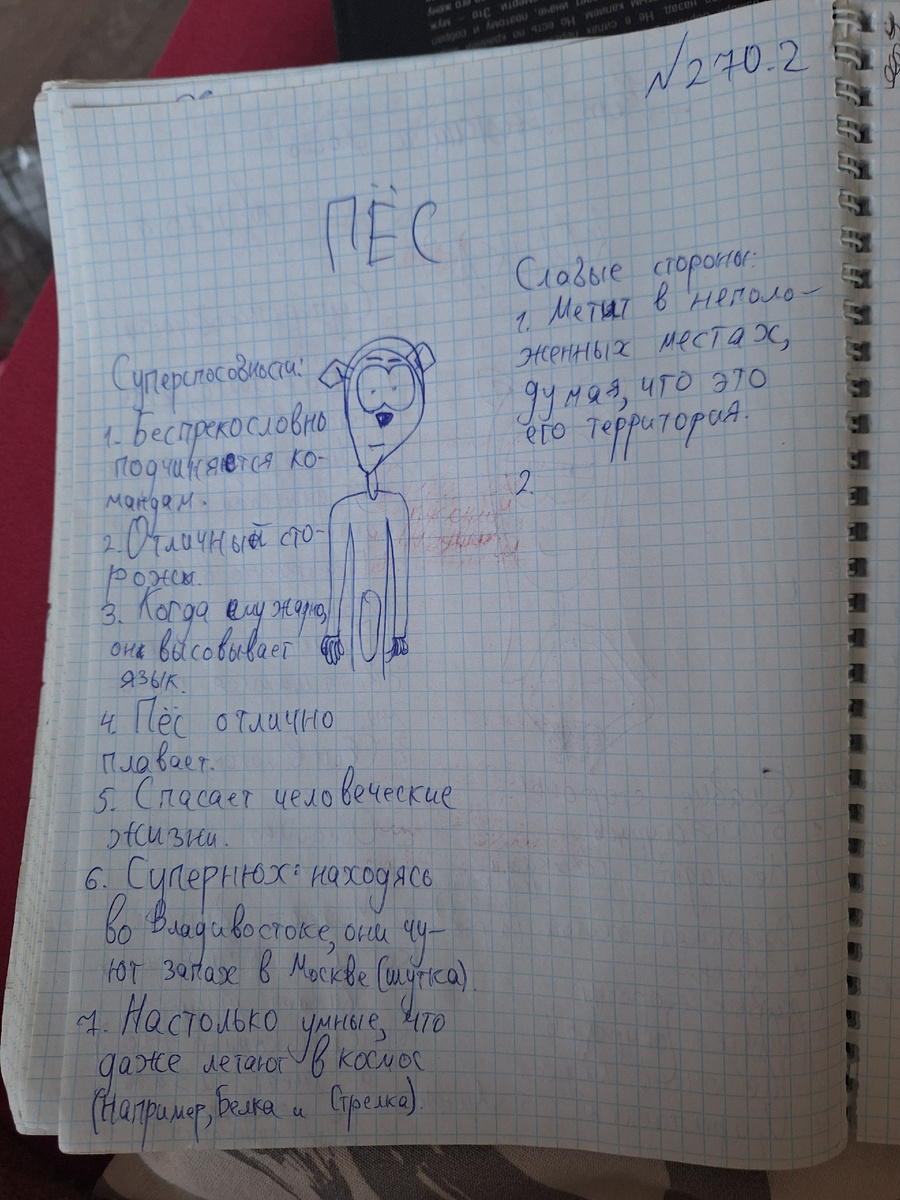 №270.2
ПЁС
Суперспособности:
1. Беспрекословно
подчиняется ко-
мандам.
2. Отличный сто-
рож.
3. Когда ему жарко,
он высовывает
язык.
4. Пёс отлично
плавает.
5. Спасает человеческие
жизни.
6. Супернюх: находясь
во Владивостоке, они чу-
ют запах в Москве (шутка).
7. Настолько умные, что
даже летают в космос
(Например, Белка и Стрелка).
Слабые стороны:
1. Метит в неполо-
женных местах,
думая, что это
его территория.
2.